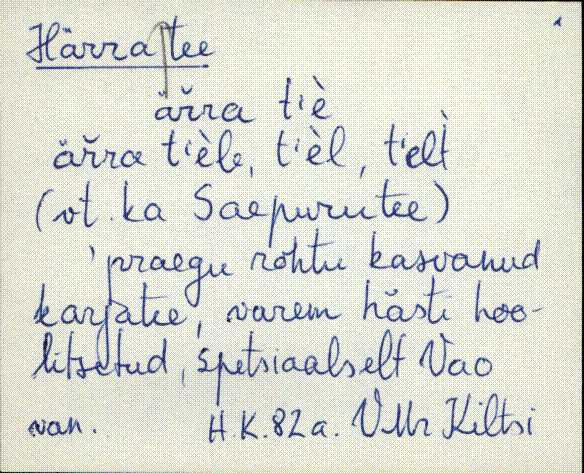 Härra|tee
är̆ra tiè
är̆ra tièle, tièl, tielt̀
(vt. ka Saepurutee)
'praegu rohtu kasvanud
karjatee, varem hästi hoo-
litsetud, spetsiaalselt Vao
van. H.K.82a. VMr Kiltsi